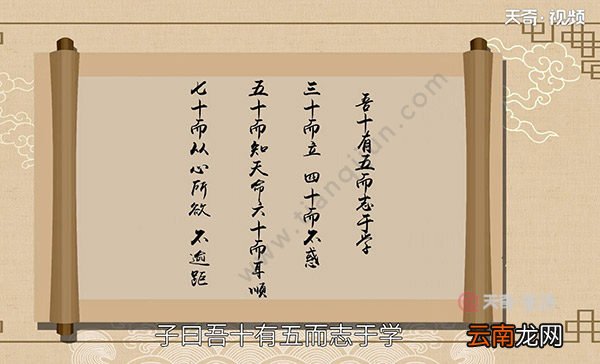 天奇·视频
吾十有五而志于学
三十而立 四十而不惑
五十而知天命六十而耳顺
七十而从心所欲 不逾距
www.tianqijian.com
子曰吾十有五而志于学
云南龙网